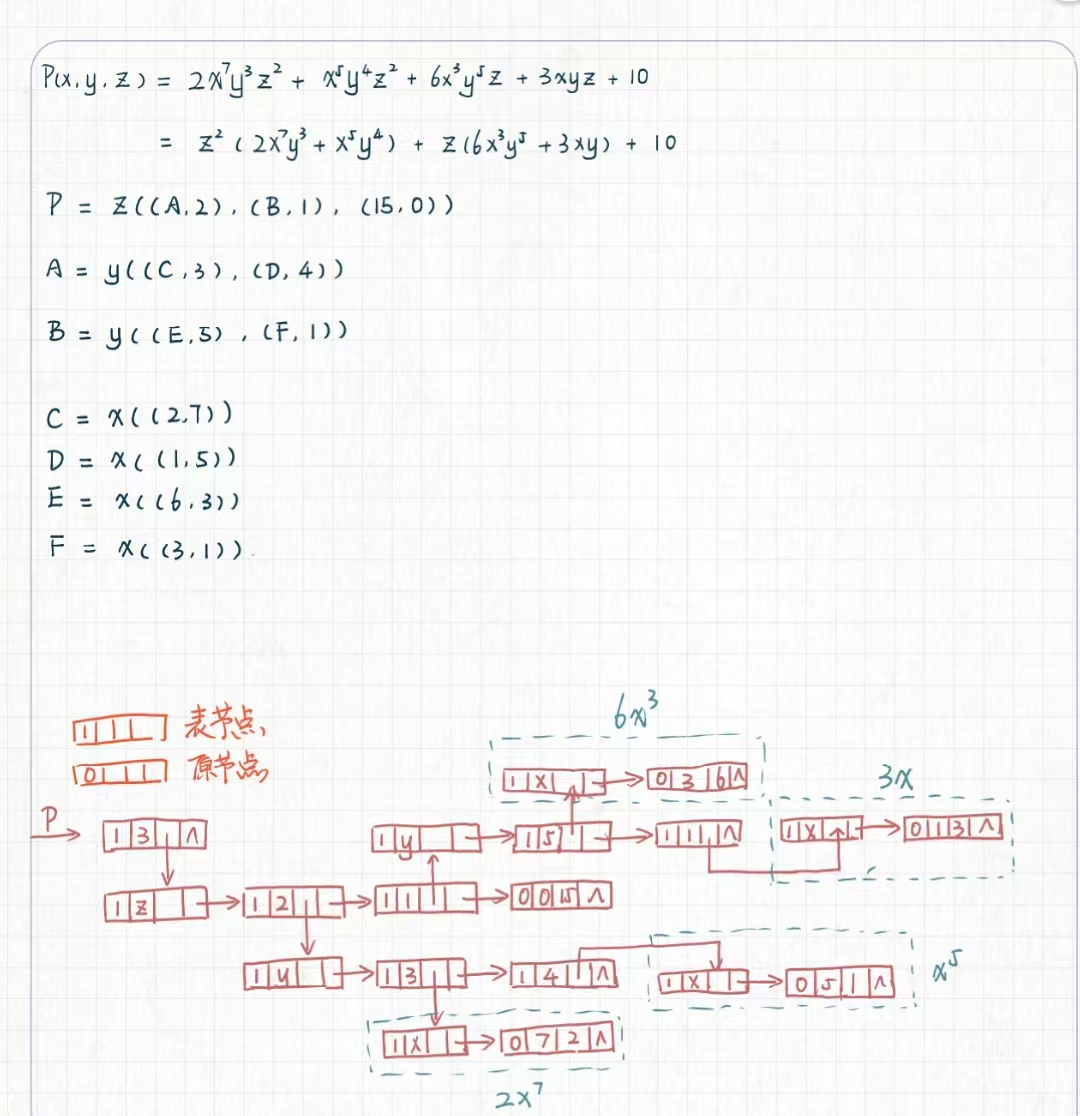 P(x,y,z) = 2x⁷y³z² + x⁵y⁴z² + 6x³y⁵z + 3xyz + 10
= z²(2x⁷y³ + x⁵y⁴) + z(6x³y⁵ + 3xy) + 10
P = z((A,2), (B,1), (15,0))
A = y((C,3), (D,4))
B = y((E,5), (F,1))
C = x((2,7))
D = x((1,5))
E = x((6,3))
F = x((3,1))
6x³
1 表节点
0 原节点
1 x 0 3 6 ∧
3x
P 1 3 ∧
1 y 1 5 1 1 ∧ 1 x 0 1 3 ∧
1 z 1 2 1 1 0 0 15 ∧
1 y 1 3 1 4 ∧ 1 x 0 5 1 ∧ x⁵
1 x 0 7 2 ∧
2x⁷